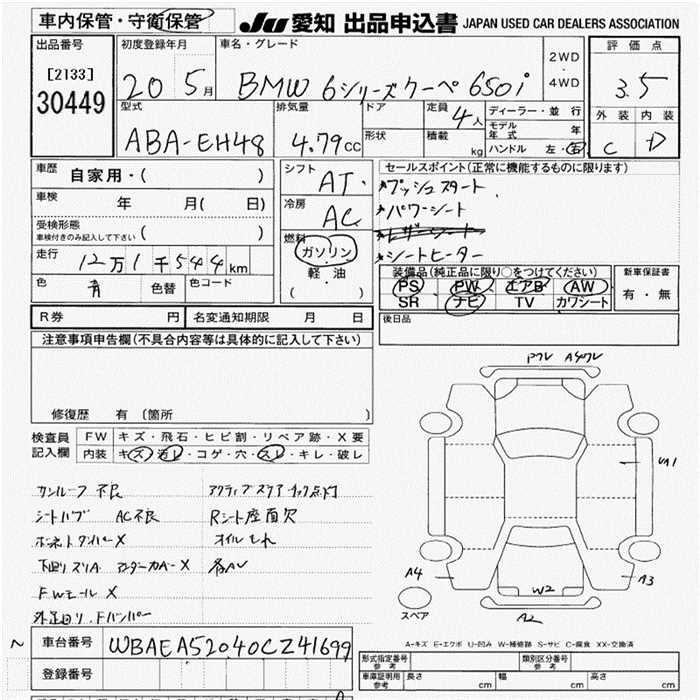 車内保管・守衛保管
JU 愛知 出品申込書 JAPAN USED CAR DEALERS ASSOCIATION
出品番号
[2133]
30449
初度登録年月
20 5月
車名・グレード
BMW 6シリーズクーペ 650i
2WD
・
4WD
評価点
3.5
外装 内装
C D
型式
ABA-EH48
排気量
4.79cc
ドア
形状
定員
4人
積載 kg
ディーラー・並行
モデル年式 年
ハンドル 左・右
車歴
自家用・( )
車検
年 月( 日)
受検形態
車検付きのみ記入して下さい ( )
走行
12万1千544km
色
青
色替
色コード
シフト
AT
冷房
AC
燃料
ガソリン
軽・油
( )
セールスポイント(正常に機能するものに限ります)
プッシュスタート
パワーシート
シートヒーター
装備品(純正品に限り○をつけてください)
PS PW エアB AW
SR ナビ TV カワシート
新車保証書
有・無
R券 円
名変通知期限 月 日
後日品
注意事項申告欄(不具合内容等は具体的に記入して下さい)
修復歴 有 〔箇所 〕
検査員
記入欄
FW キズ・飛石・ヒビ割・リペア跡・X要
内装 キズ・汚レ・コゲ・穴・スレ・キレ・破レ
サンルーフ 不良
シートハブ AC不良
Rシート座面欠
ボンネットダンパーX
オイルもれ
下回りスリA アンダーカバーX
各AU
FWモールX
外芝回り、Fバンパー
PフレA4フレ
UA1
A4
A3
W2
A2
スペア
A-キズ E-エクボ U-凹み W-補修跡 S-サビ C-腐食 XX-交換済
車台番号
WBAEA52040CZ41699
登録番号
形式指定番号
参考
類別区分番号
参考
車庫証明用
参考
長さ cm
幅 cm
高さ cm